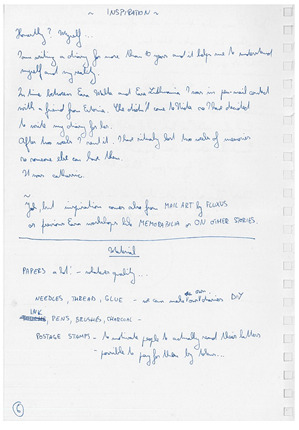 ~ INSPIRATION ~
Honestly? Myself...
I'm writing a diary for more than 10 years and it helps me to understand
myself and my reality.
In time between Eva Malta and Eva Lithuania I was in permanent contact
with a friend from Estonia. She didn't come to so I had decided
to write my diary for her.
After two weeks I sent it. I had actually lost two weeks of memories
so someone else can have them.
It was cathartic.
~
Yeah, but inspiration comes also from MAIL ART by FLUXUS
or previous Eva workshops like MEMORABILIA or ON OTHER STORIES.
Material
PAPERS a lot! - quality...
NEEDLES, THREAD, GLUE - we can make our own diaries DIY
INK, PENS, BRUSHES, CHARCOAL -
POSTAGE STAMPS - to motivate people to actually send their letters
- possible to pay for them by
6